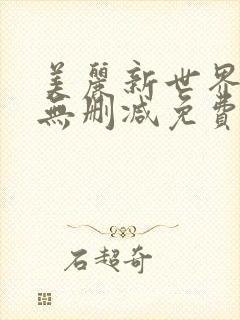 美麗新世界
無刪減免費
石超奇